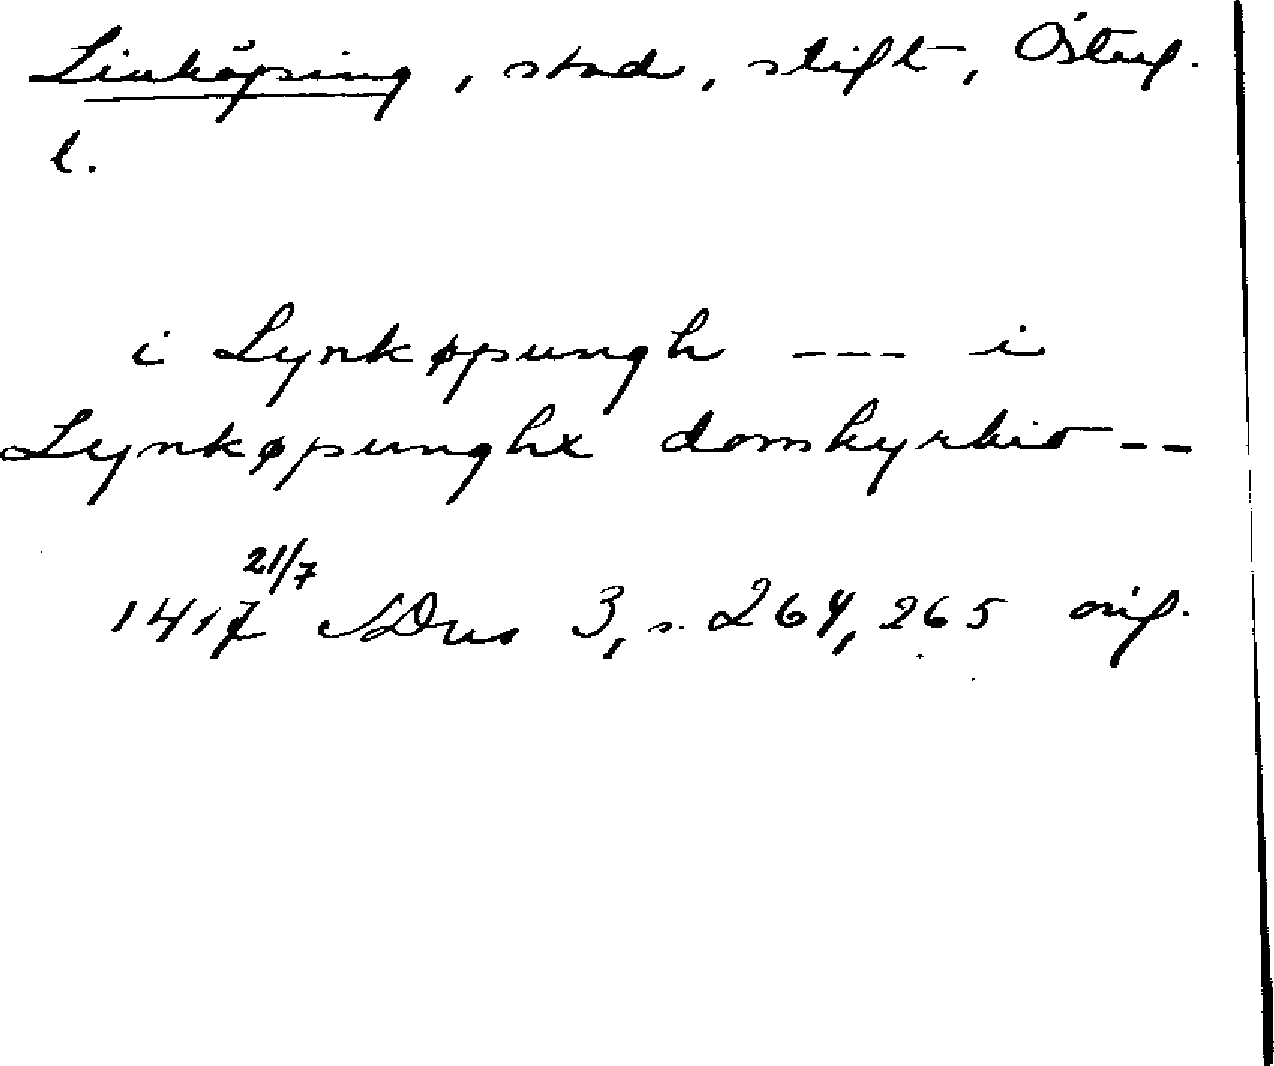 Linköping, stad, stift, Östergl.
l.
i Lynkøpungh --- i
Lynkøpunghx domkyrkio --
1417 21/7 SDns 3, s. 264, 265 orig.